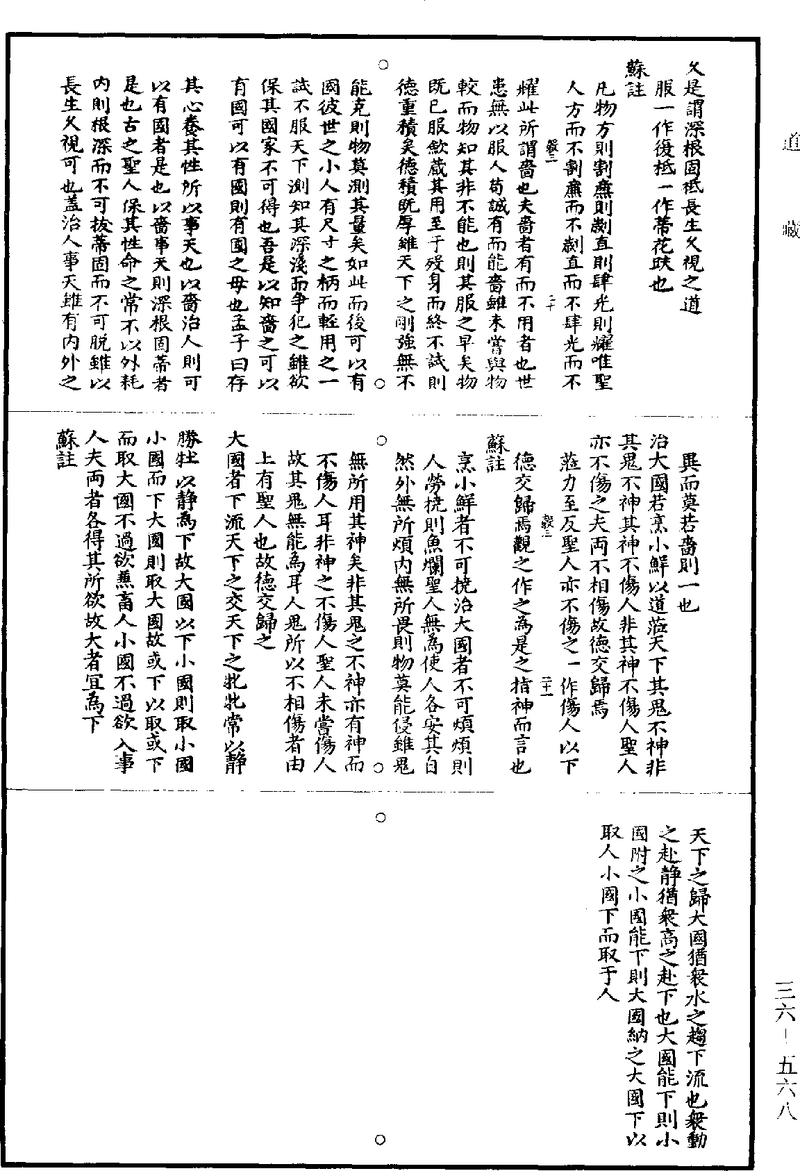 道藏
久是謂深根固柢長生久視之道
服一作復柢一作蔕花趺也
蘇註
凡物方則割廉則劌直則肆光則耀唯聖
人方而不割廉而不劌直而不肆光而不
二十
耀此所謂嗇也夫嗇者有而不用者也世
患無以服人苟誠有而能嗇雖未嘗與物
較而物知其非不能也則其服之早矣物
既已服歛藏其用至于歿身而終不試則
德重積矣德積既厚雖天下之剛強無不
能克則物莫測其量矣如此而後可以有
國彼世之小人有尺寸之柄而輕用之一
試不服天下測知其深淺而争犯之雖欲
保其國家不可得也吾是以知嗇之可以
有國可以有國則有國之母也孟子曰存
其心養其性所以事天也以嗇治人則可
以有國者是也以嗇事天則深根固蔕者
是也古之聖人保其性命之常不以外耗
内則根深而不可拔蔕固而不可脱雖以
長生久視可也盖治人事天雖有内外之
異而莫若嗇則一也
治大國若烹小鮮以道莅天下其鬼不神非
其鬼不神其神不傷人非其神不傷人聖人
亦不傷之夫兩不相傷故德交歸焉
莅力至反聖人亦不傷之一作傷人以下
二十一
德交歸焉觀之作之為是之指神而言也
蘇註
烹小鮮者不可撓治大國者不可煩煩則
人勞撓則魚爛聖人無為使人各安其自
然外無所煩内無所畏則物莫能侵雖鬼
無所用其神矣非其鬼之不神亦有神而
不傷人耳非神之不傷人聖人未嘗傷人
故其鬼無能為耳人鬼所以不相傷者由
上有聖人也故德交歸之
大國者下流天下之交天下之牝牝常以靜
勝牡以靜為下故大國以下小國則取小國
小國而下大國則取大國故或下以取或下
而取大國不過欲兼畜人小國不過欲入事
人夫兩者各得其所欲故大者宜為下
蘇註
天下之歸大國猶衆水之趨下流也衆動
之赴靜猶衆高之赴下也大國能下則小
國附之小國能下則大國納之大國下以
取人小國下而取于人
三六－五六八